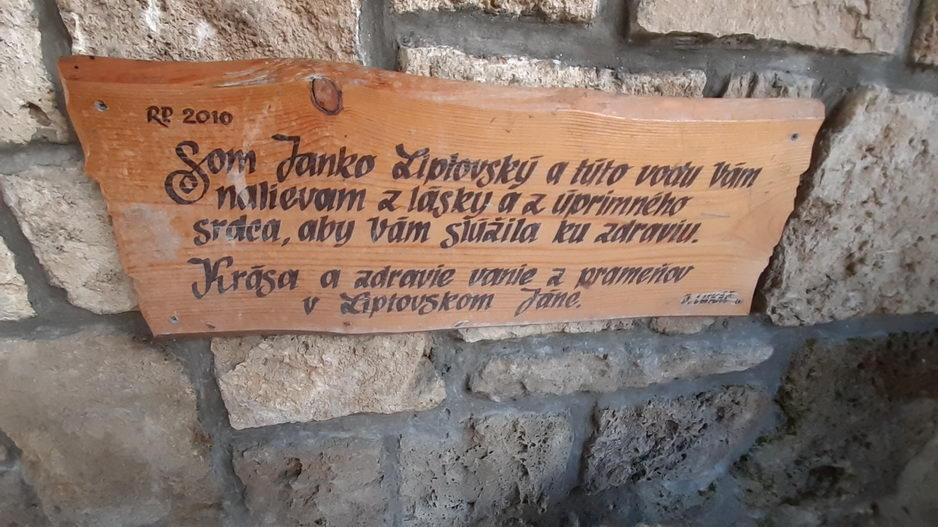 RP 2010
Som Janko Liptovský a túto vodu Vám
nalievam z lásky a z úprimného
srdca, aby Vám slúžila ku zdraviu.
Krása a zdravie vanie z prameňov
v Liptovskom Jáne.